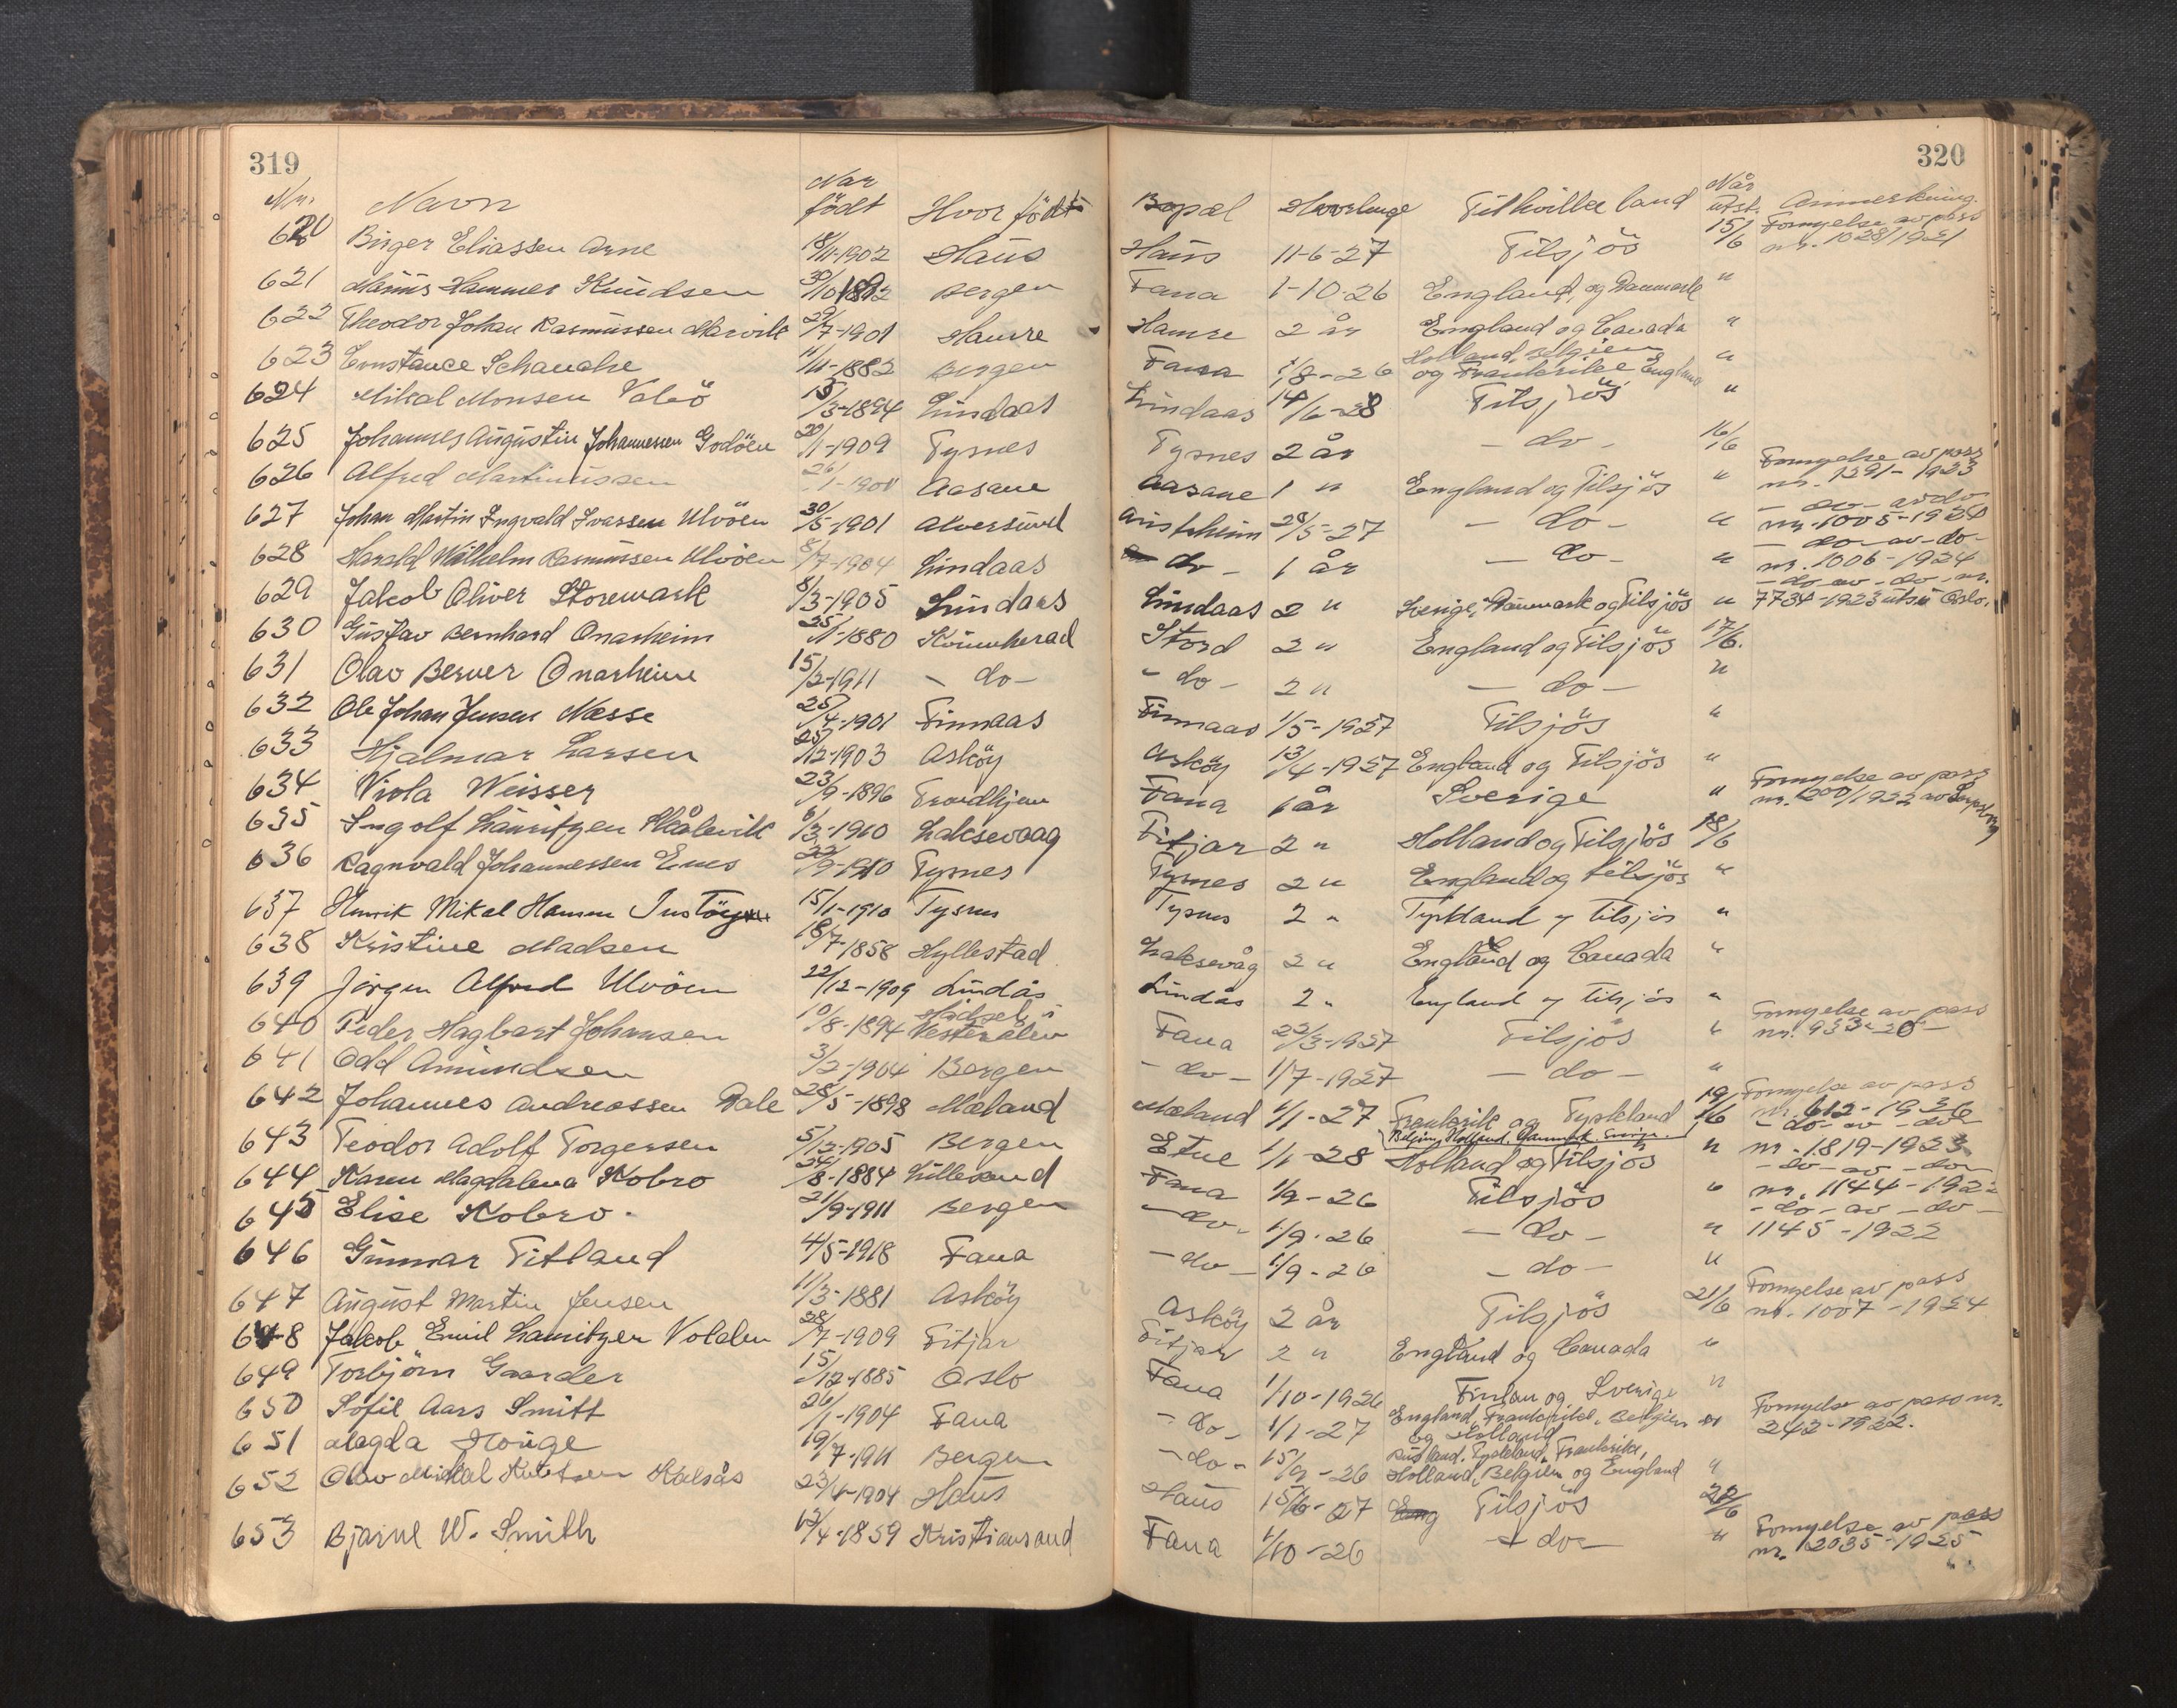 319
320
Nr. Navn Når født Hvor født Bopæl Hvorlenge Til hvilke land Når utst. Anmerkning.
620 Birger Eliassen Arne 18/11-1902 Haus Haus 11-6-27 Tilsjös 15/6 Fornyelse av pass nr. 1028/1921
621 Hammer Knudsen 30/10 Bergen Fana 1-10-26 England og Danmark "
622 Theodor Johan Rasmussen 29/7-1901 Hamre Hamre 2 år England og Canada "
623 Schanche 11/11-1882 Bergen Fana 1/8-26 Holland, Belgien og Frankrike England "
624 Mikal Monsen 15/3-1894 Lindaas Lindaas 14/6-28 Tilsjös "
625 Johannes Augustin Johannessen Godöen 20/1-1909 Tysnes Tysnes 2 år - do - 16/6
626 Alfred Martinussen 26/1- Aasane Aasane 1 " England og Tilsjös " Fornyelse av pass nr. 1291-1923
627 Johan Martin Ingvald Ivarsen Ulvöen 30/5-1901 Alversund 28/5-27 - do - " - do - av do nr. 1005-1924
628 Harald Wilhelm Rasmussen Ulvöen 8/7-1904 Lindaas - do - 1 år - do - " - do - av - do - nr. 1006-1924
629 Jakob Oliver Storemark 8/3-1905 Lindaas Lindaas 2 " Sverige, Danmark og Tilsjös " - do - av - do - nr. 7734-1923 utst. Oslo.
630 Gustav Bernhard Onarheim 25/1-1880 Kvinnherad Stord 2 " England og Tilsjös 17/6.
631 Olav Berner Onarheim 15/2-1911 - do - - do - 2 " - do - "
632 Ole Johan Jensen Næsse 25/4-1901 Finnaas Finnaas 1/5-1927 Tilsjös "
633 Hjalmar Larsen 25/12-1903 Asköy Asköy 13/4-1927 England og Tilsjös "
634 Viola Weisser 23/9-1896 Trondhjem Fana 1 år Sverige " Fornyelse av pass nr. 1200/1922 av
635 Ingolf Lauritzen Skålevik 6/3-1910 Laksevaag Fitjar 2 " Holland og Tilsjös 18/6
636 Ragnvald Johannessen Enes 22/9-1910 Tysnes Tysnes 2 " England og tilsjös "
637 Henrik Mikal Hansen 15/1-1910 Tysnes Tysnes 2 " Tyskland og tilsjös "
638 Kristine Madsen 18/7-1858 Hyllestad Laksevåg 2 " England og Canada "
639 Jörgen Alfred Ulvöen 22/12-1909 Lindås Lindås 2 " England og tilsjös "
640 Peder Hagbart Johansen 10/8-1894 Hadsel i Vesterålen Fana 22/3-1927 Tilsjös " Fornyelse av pass nr. 933-20
641 Odd Amundsen 3/2-1904 Bergen - do - 1/7-1927 - do - "
642 Johannes Andreassen Dale 28/5-1898 Mæland Mæland 1/1-27 Frankrik og Tyskland Belgien, Holland, Danmark, Sverige 19/6 Fornyelse av pass nr. 612-1926
643 Teodor Adolf Torgersen 5/12-1905 Bergen Etne 1/1-28 Holland og Tilsjös " - do - av - do - nr. 1819-1923
644 Karen Magdalena Kobro 24/8-1884 Lillesand Fana 1/9-26 Tilsjös " - do - av - do - nr. 1144-1922
645 Elise Kobro. 21/9-1911 Bergen - do - 1/9-26 - do - " - do - av - do - 1145-1922
646 Gunnar Titland 4/5-1918 Fana - do - 1/9-26 - do - "
647 August Martin Jensen 1/3-1881 Asköy Asköy 2 år Tilsjös 21/6 Fornyelse av pass nr. 1007-1924
648 Jakob Emil Lauritzen Volden 28/7-1909 Fitjar Fitjar 2 " England og Canada "
649 Torbjörn Gaarder 15/12-1885 Oslo Fana 1/10-1926 Finlan og Sverige "
650 Sofie Aars Smitt 26/1-1904 Fana - do - 1/1-27 England, Frankrike, Belgien og Holland " Fornyelse av pass nr. 242-1922.
651 Magda Houge 19/7-1911 Bergen - do - 15/9-26 Tyskland, Frankrike, Holland, Belgien og England "
652 Olav Mikal Knutsen Kalsås 23/4-1904 Haus Haus 15/6-27 Tilsjös 22/6
653 Bjarne W. Smith 13/4-1859 Kristiansand Fana 1/10-26 - do - " Fornyelse av pass nr. 12035-1925